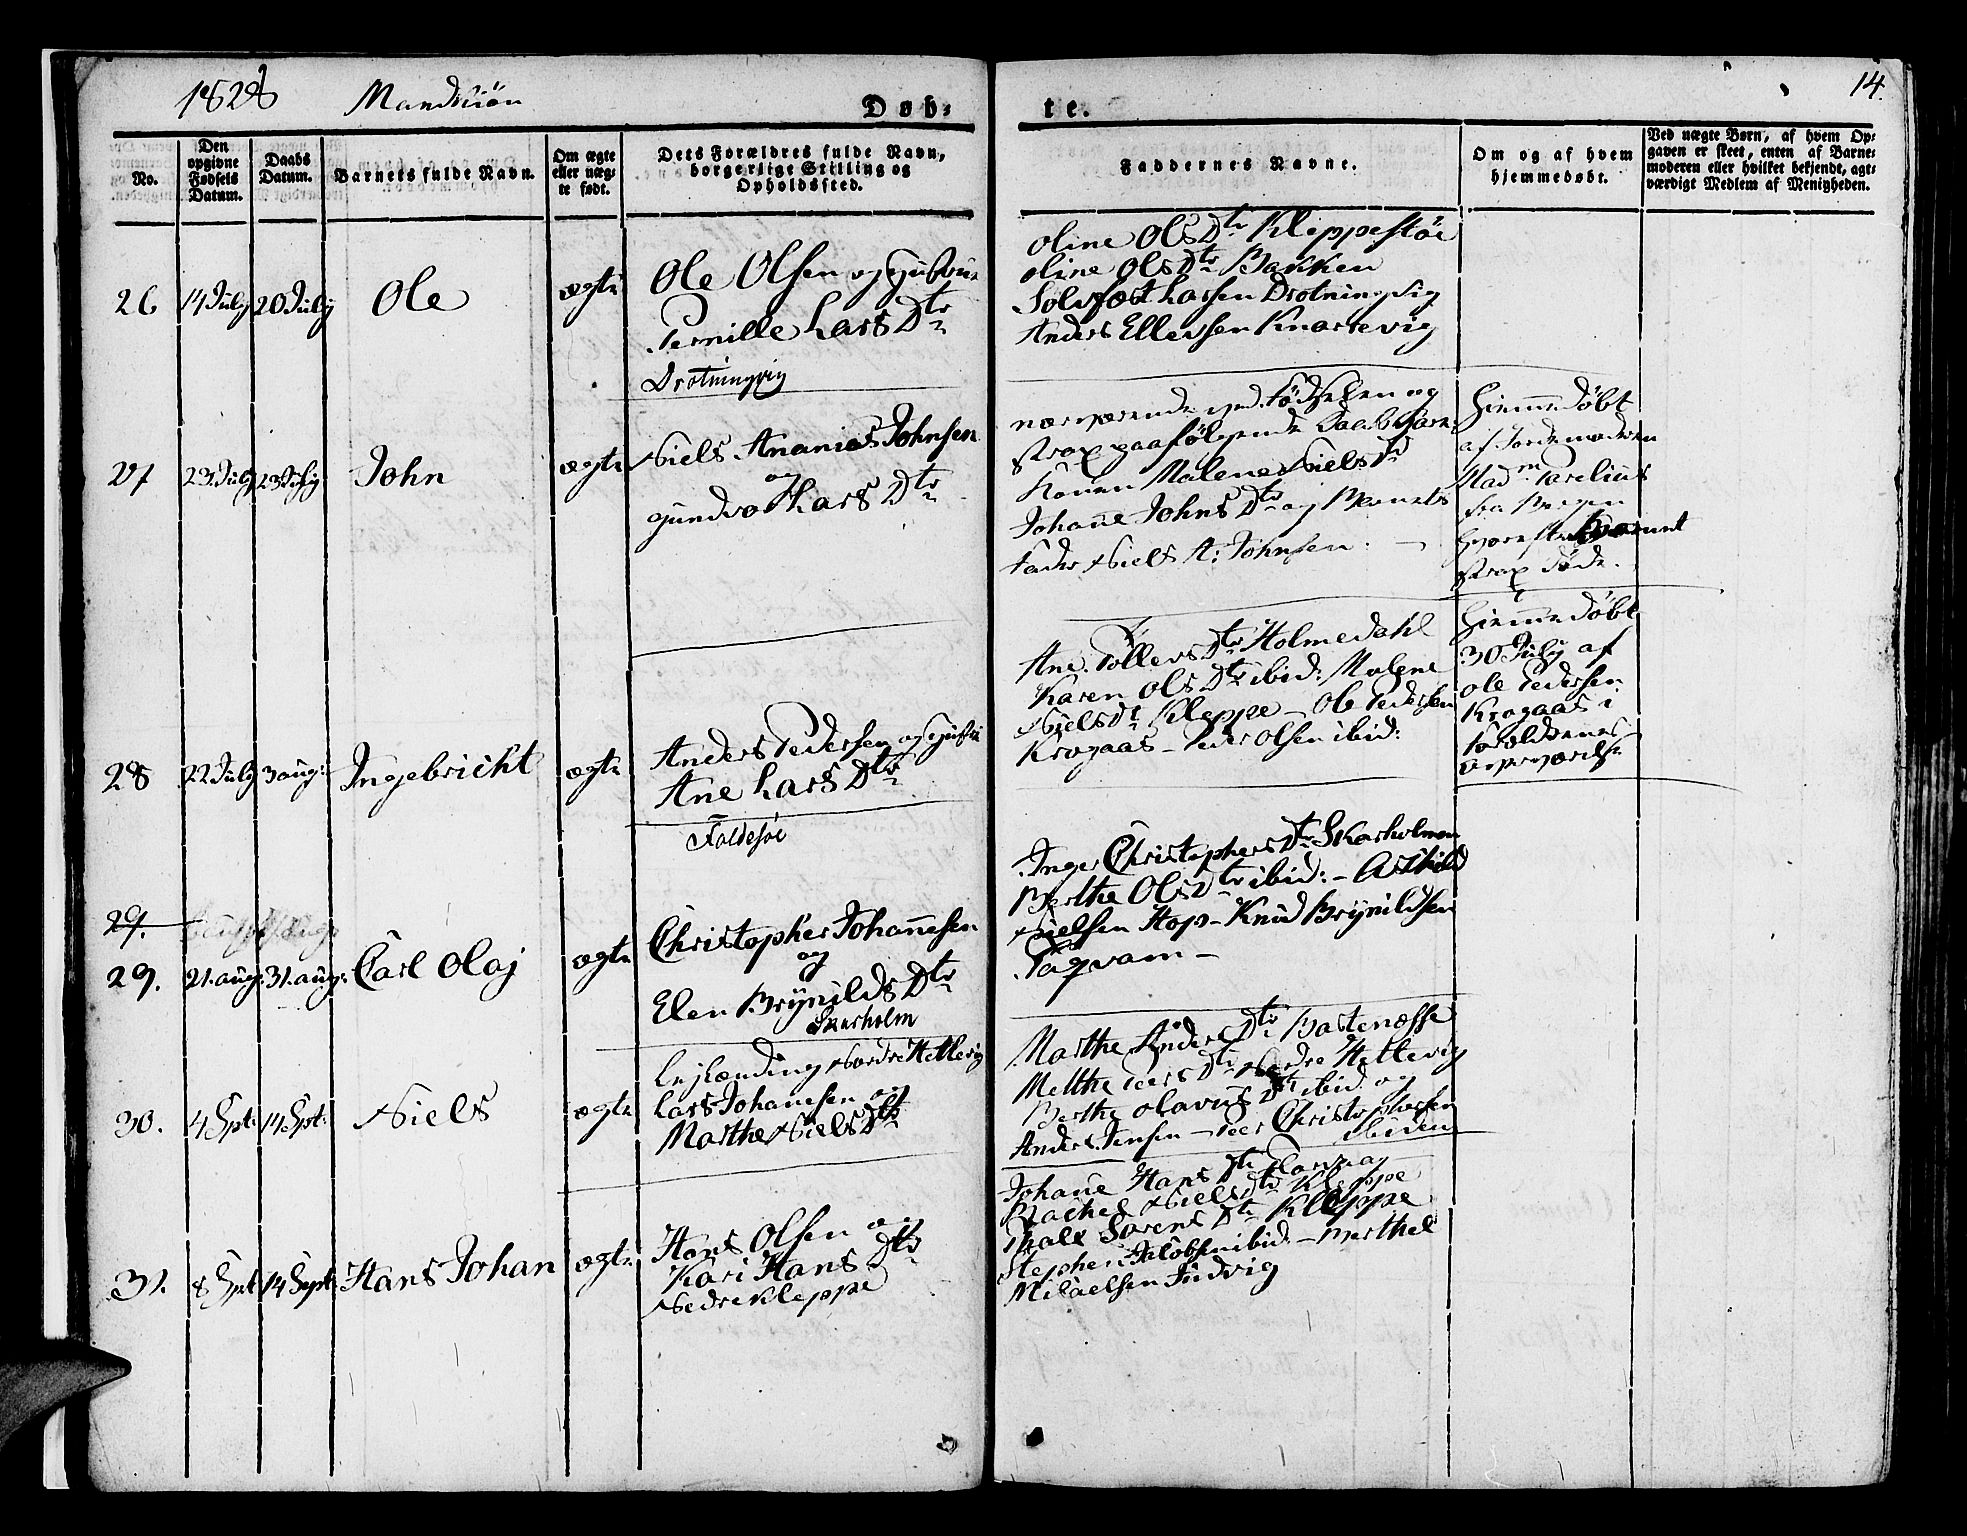 1828 Mandkiön
Døb-
te.
14.
No.
Den opgivne Fødsels Datum.
Daabs Datum.
Barnets fulde Navn.
Om ægte eller nægte født.
Dets Forældres fulde Navn, borgerlige Stilling og Opholdssted.
Faddernes Navne.
Om og af hvem hjemmedøbt.
Ved nægte Børn, af hvem Opgaven er skeet, enten af Barnemoderen eller hvilket bekjendt, agtværdigt Medlem af Menigheden.
26 14 July 20 July Ole ægte
Ole Olsen og Hustrue
Pernille Lars Dtr
Drotningvig
Oline Ols Dtr Kleppestöe
Oline Ols Dtr Bakken
Solvfæst Larsen Drotningvig
Anders Ellevsen Knarrevig
27 23 July 23 July John ægte
Niels Ananias Johnsen
og
Gundvor Lars Dtr
nærværende ved Födselen og
strax paafölgende Daab vare
Konen Malene Niels Dr
Johane Johns Dtr og Barnets
Fader Niels A: Johnsen.
Hiemedöbt
af Jordemoderen
Mad
fra Bergen
hvorefter Barnet
strax döde.
28 22 July 3 aug: Ingebricht ægte
Anders Pedersen og Hustrue
Ane Lars Dtr
Foldesöe
Ane Tollevs Dtr Holmedahl
Karen Ols Dtr ibid: Malene
Niels Dr Kleppe - Ole Pedersen
Krogaas - Peder Olsen ibid:
Hiemedöbt
30 July af
Ole Pedersen
Krogaas i
Forældrenes
29.
29. 21. aug: 31. aug: Carl Olaj ægte
Christopher Johannesen
og
Elen Brÿnilds Dtr
Skarholm
Inger Christophers Dtr Skarholmen
Berthe Ols Dtr ibid: - Askild
Nielsen Hop - Knud Brÿnildsen
30. 4 Spt: 14 Spt: Niels ægte
Nordre Hettevig
Lars Johanesen og
Marthe Niels Dtr
Marthe Anders Dtr Bartenæsse
Melthe Peers Dtr Nordre Hettevig
Berthe Olavus Dtr ibid og
Anders Jensen - Peer Christophersen
ibidem
31. 8 Spt 14 Sept: Hans Johan ægte
Hans Olsen og
Kari Hans Dtr
Nedre Kleppe
Johane Hans Dtr
Rachel Niels Dtr Kleppe
Sörens Dtr Kleppe
Stephen Jacobsen ibid: - Berthel
Micaelsen